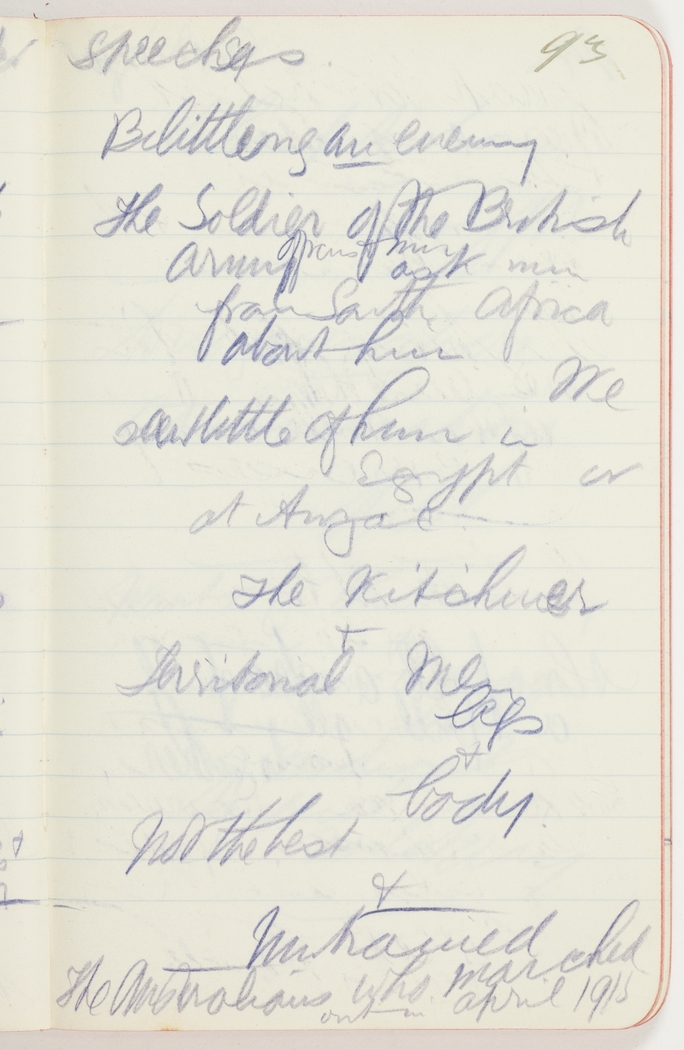 93
speeches.
Belittleing an enemy.
The Soldier of the British
army must ask men
from South Africa
about him
We
saw little of him in
Egypt or
at Anzac.
The Kitchener
+
Territorial Men
legs
+
body.
Not the best
+
Untrained
The Australians who marched
out in april 1915